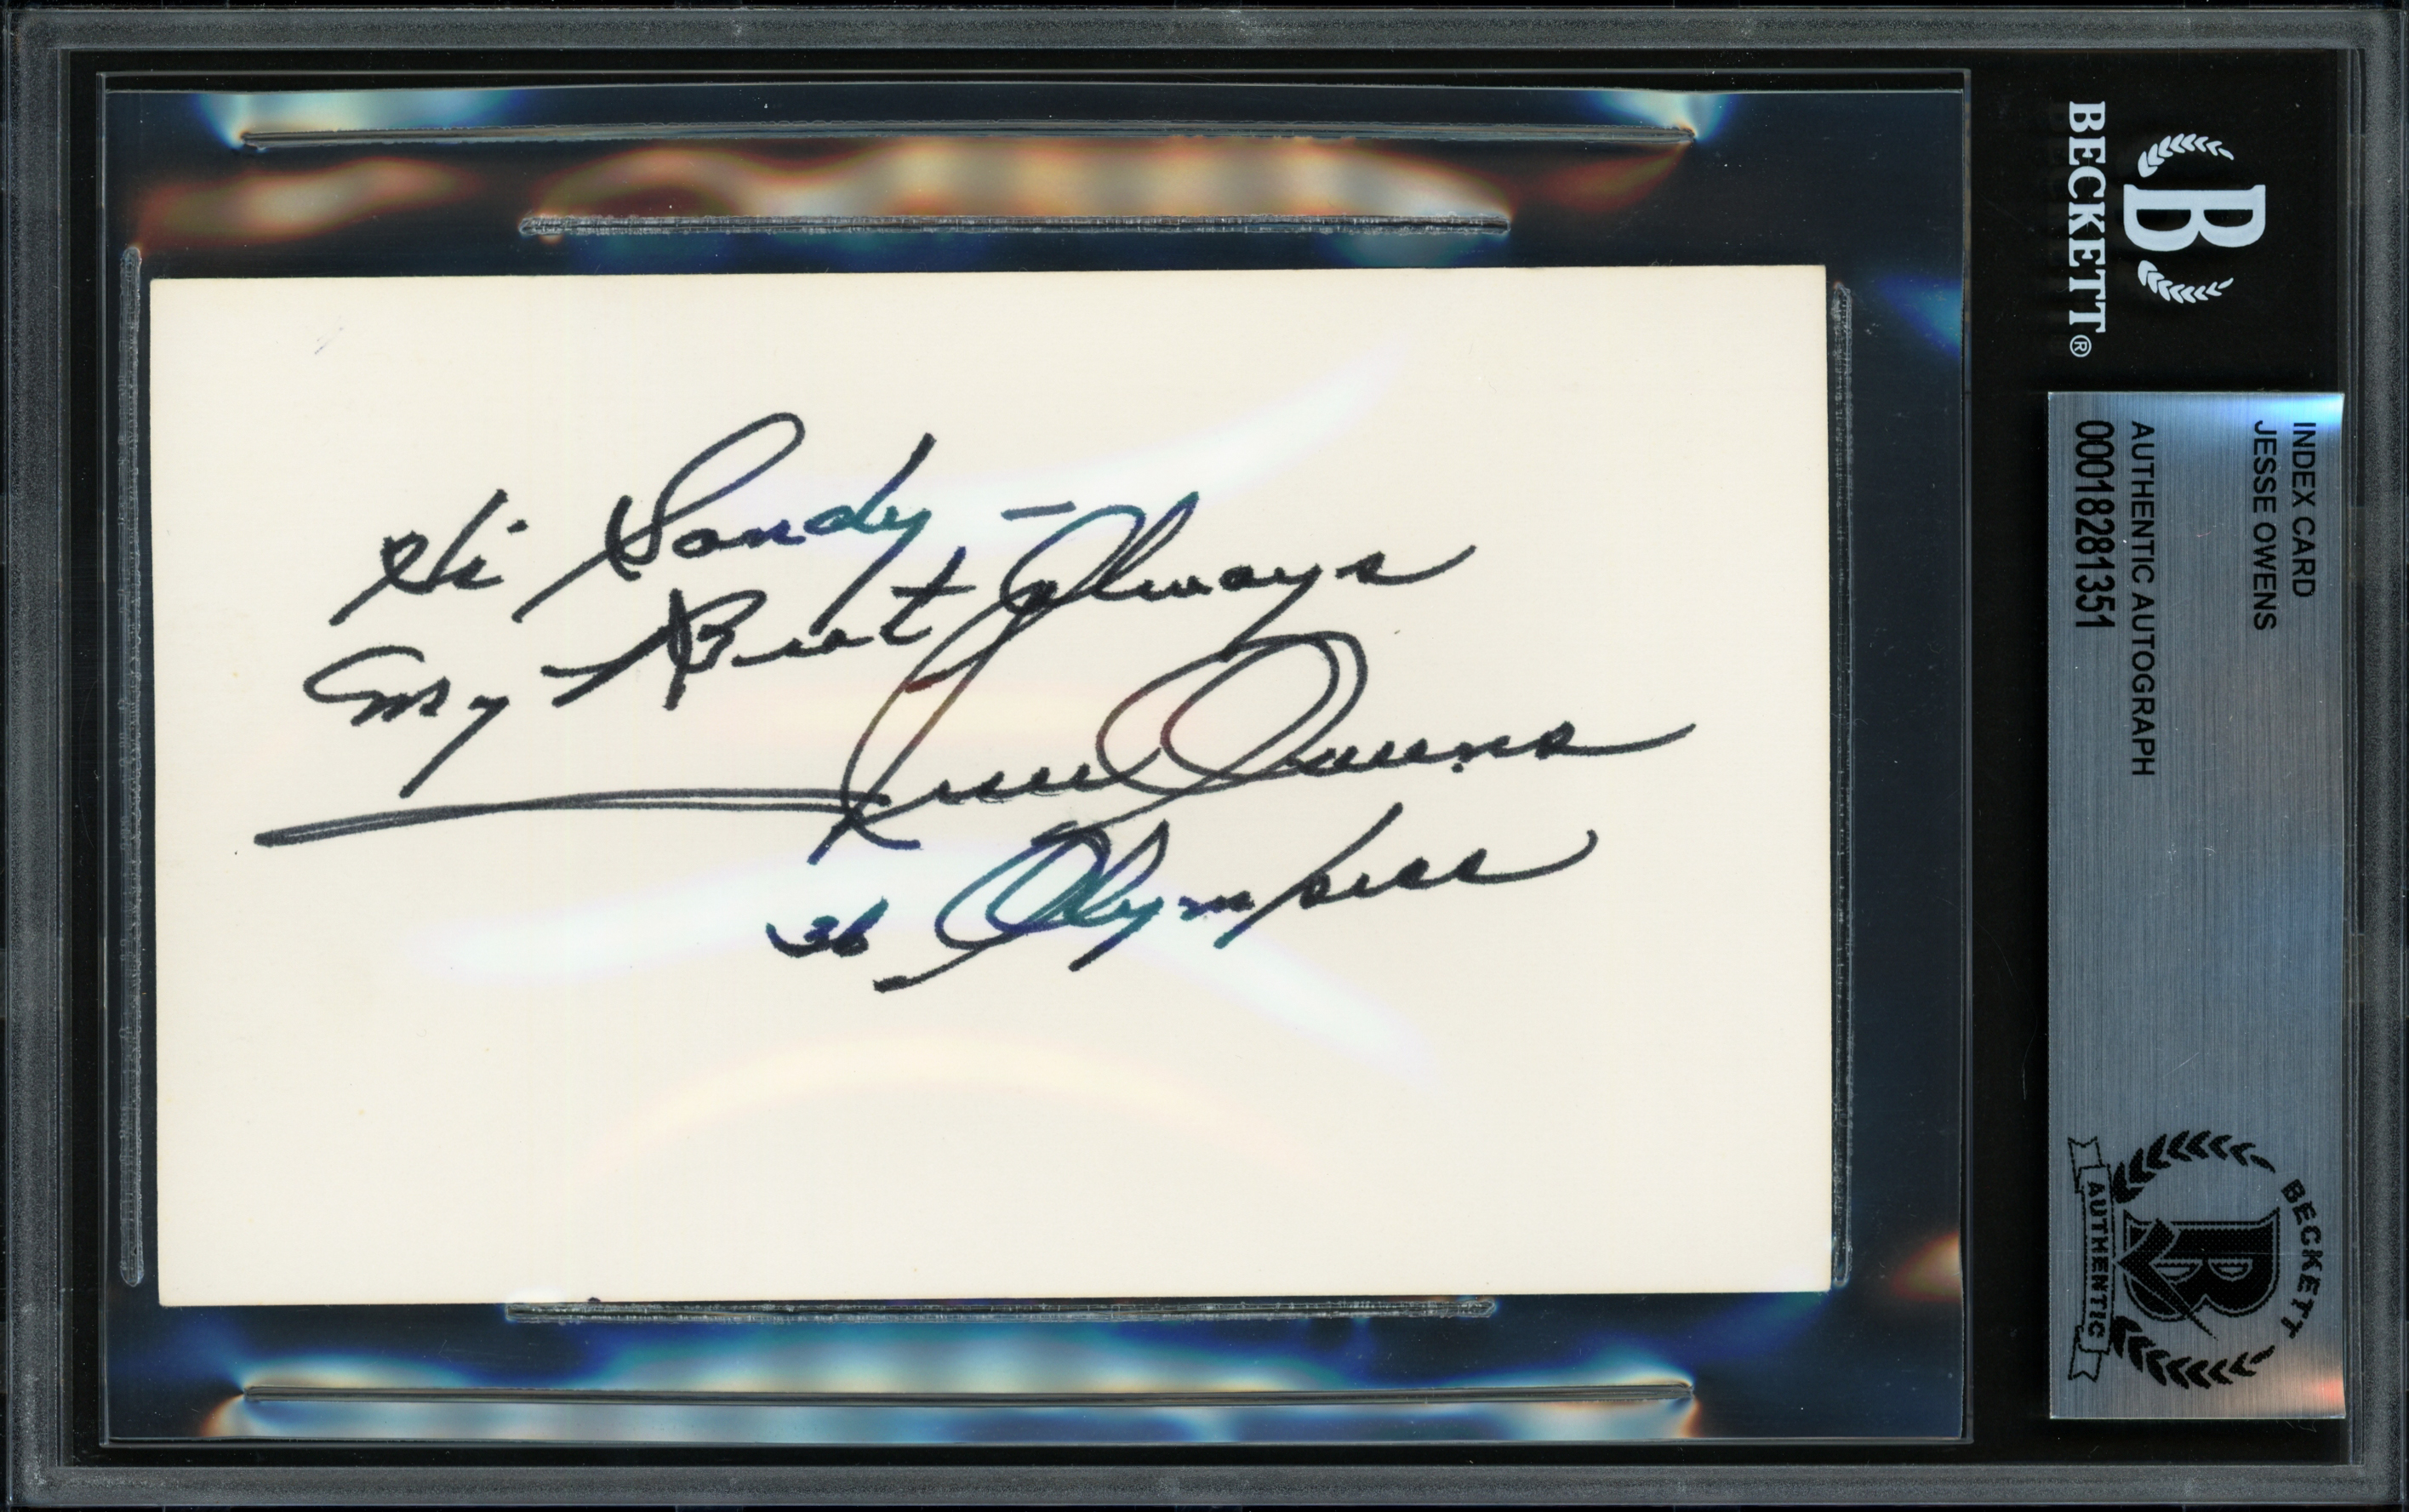 Hi Sandy —
My Best Always
Jesse Owens
36 Olympics
BECKETT®
B
INDEX CARD
JESSE OWENS
AUTHENTIC AUTOGRAPH
00018281351
BECKETT
B
AUTHENTIC